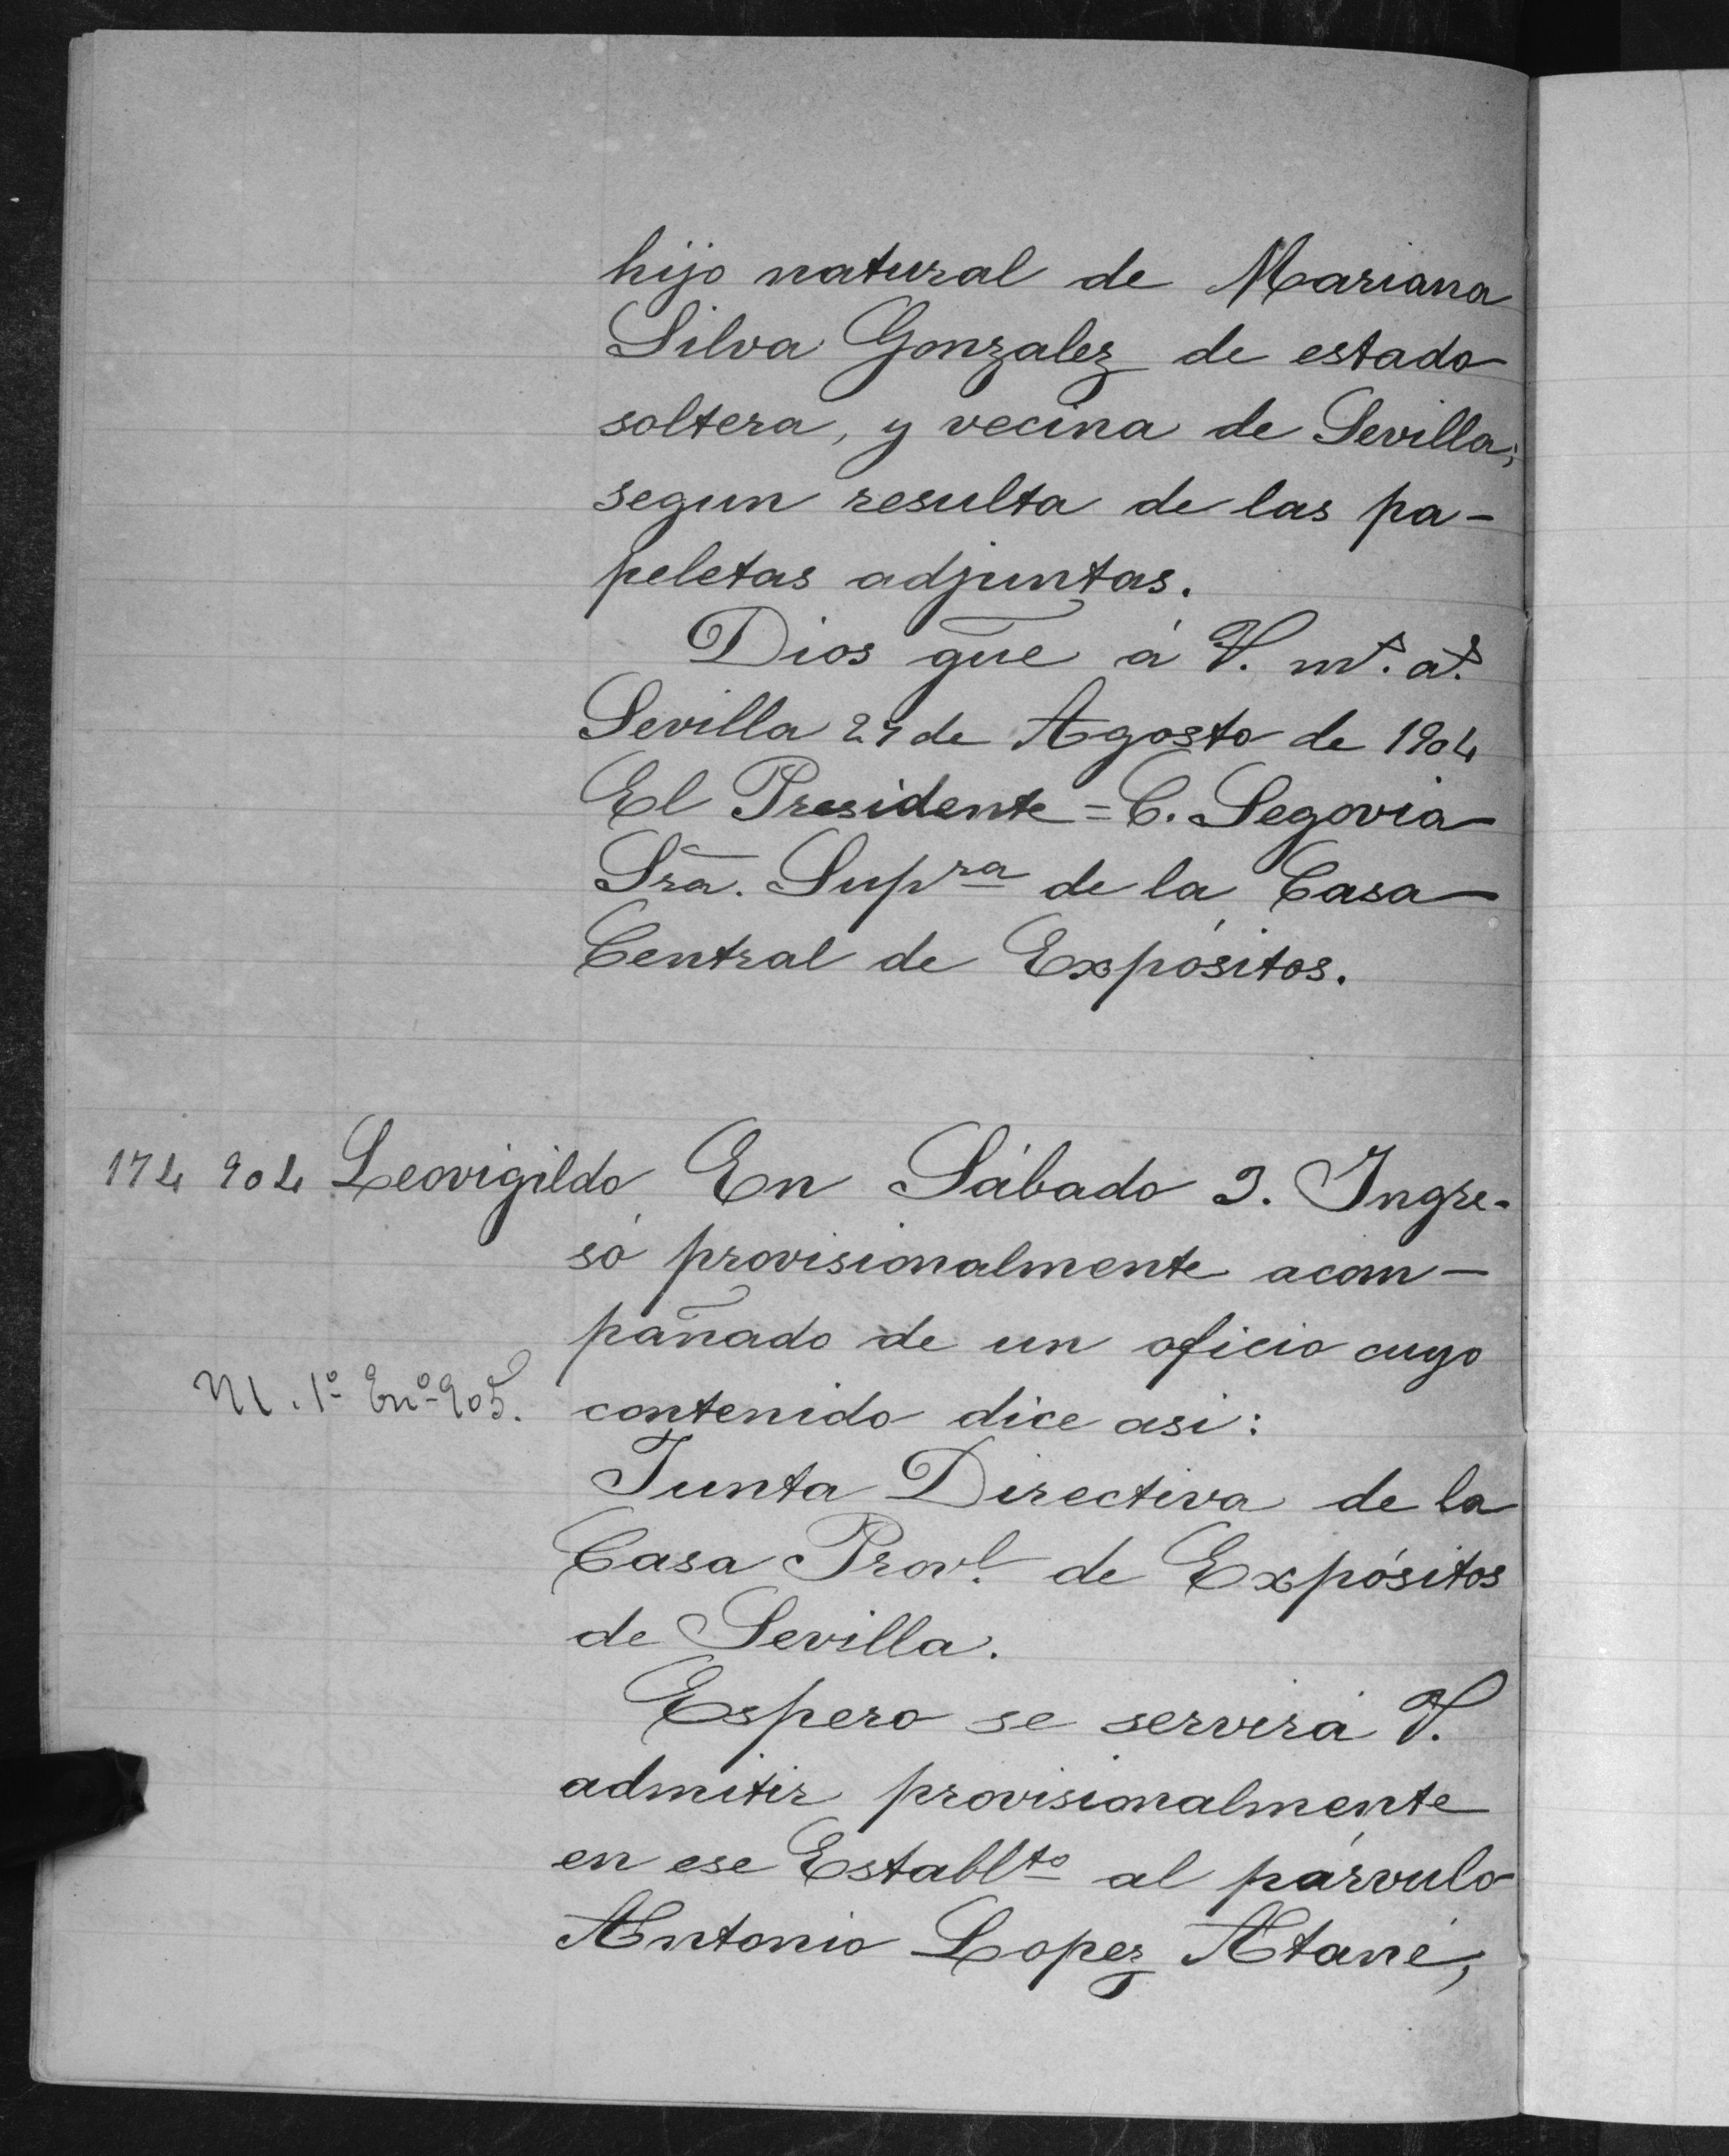 hijo natural de Mariana
Silva Gonzalez de estado
soltera, y vecina de Sevilla;
segun resulta de las pa-
peletas adjuntas.
Dios gue á V. ms. as.
Sevilla 27 de Agosto de 1904
El Presidente = C. Segovia
Sra. Supra de la Casa
Central de Expósitos.
174 904 Leovigildo En Sábado 3. Ingre-
só provisionalmente acom-
pañado de un oficio cuyo
M. 1º Enº 905. contenido dice asi:
Junta Directiva de la
Casa Provl. de Expósitos
de Sevilla.
Espero se servirá V.
admitir provisionalmente
en ese Establto al párvulo
Antonio Lopez Atané,